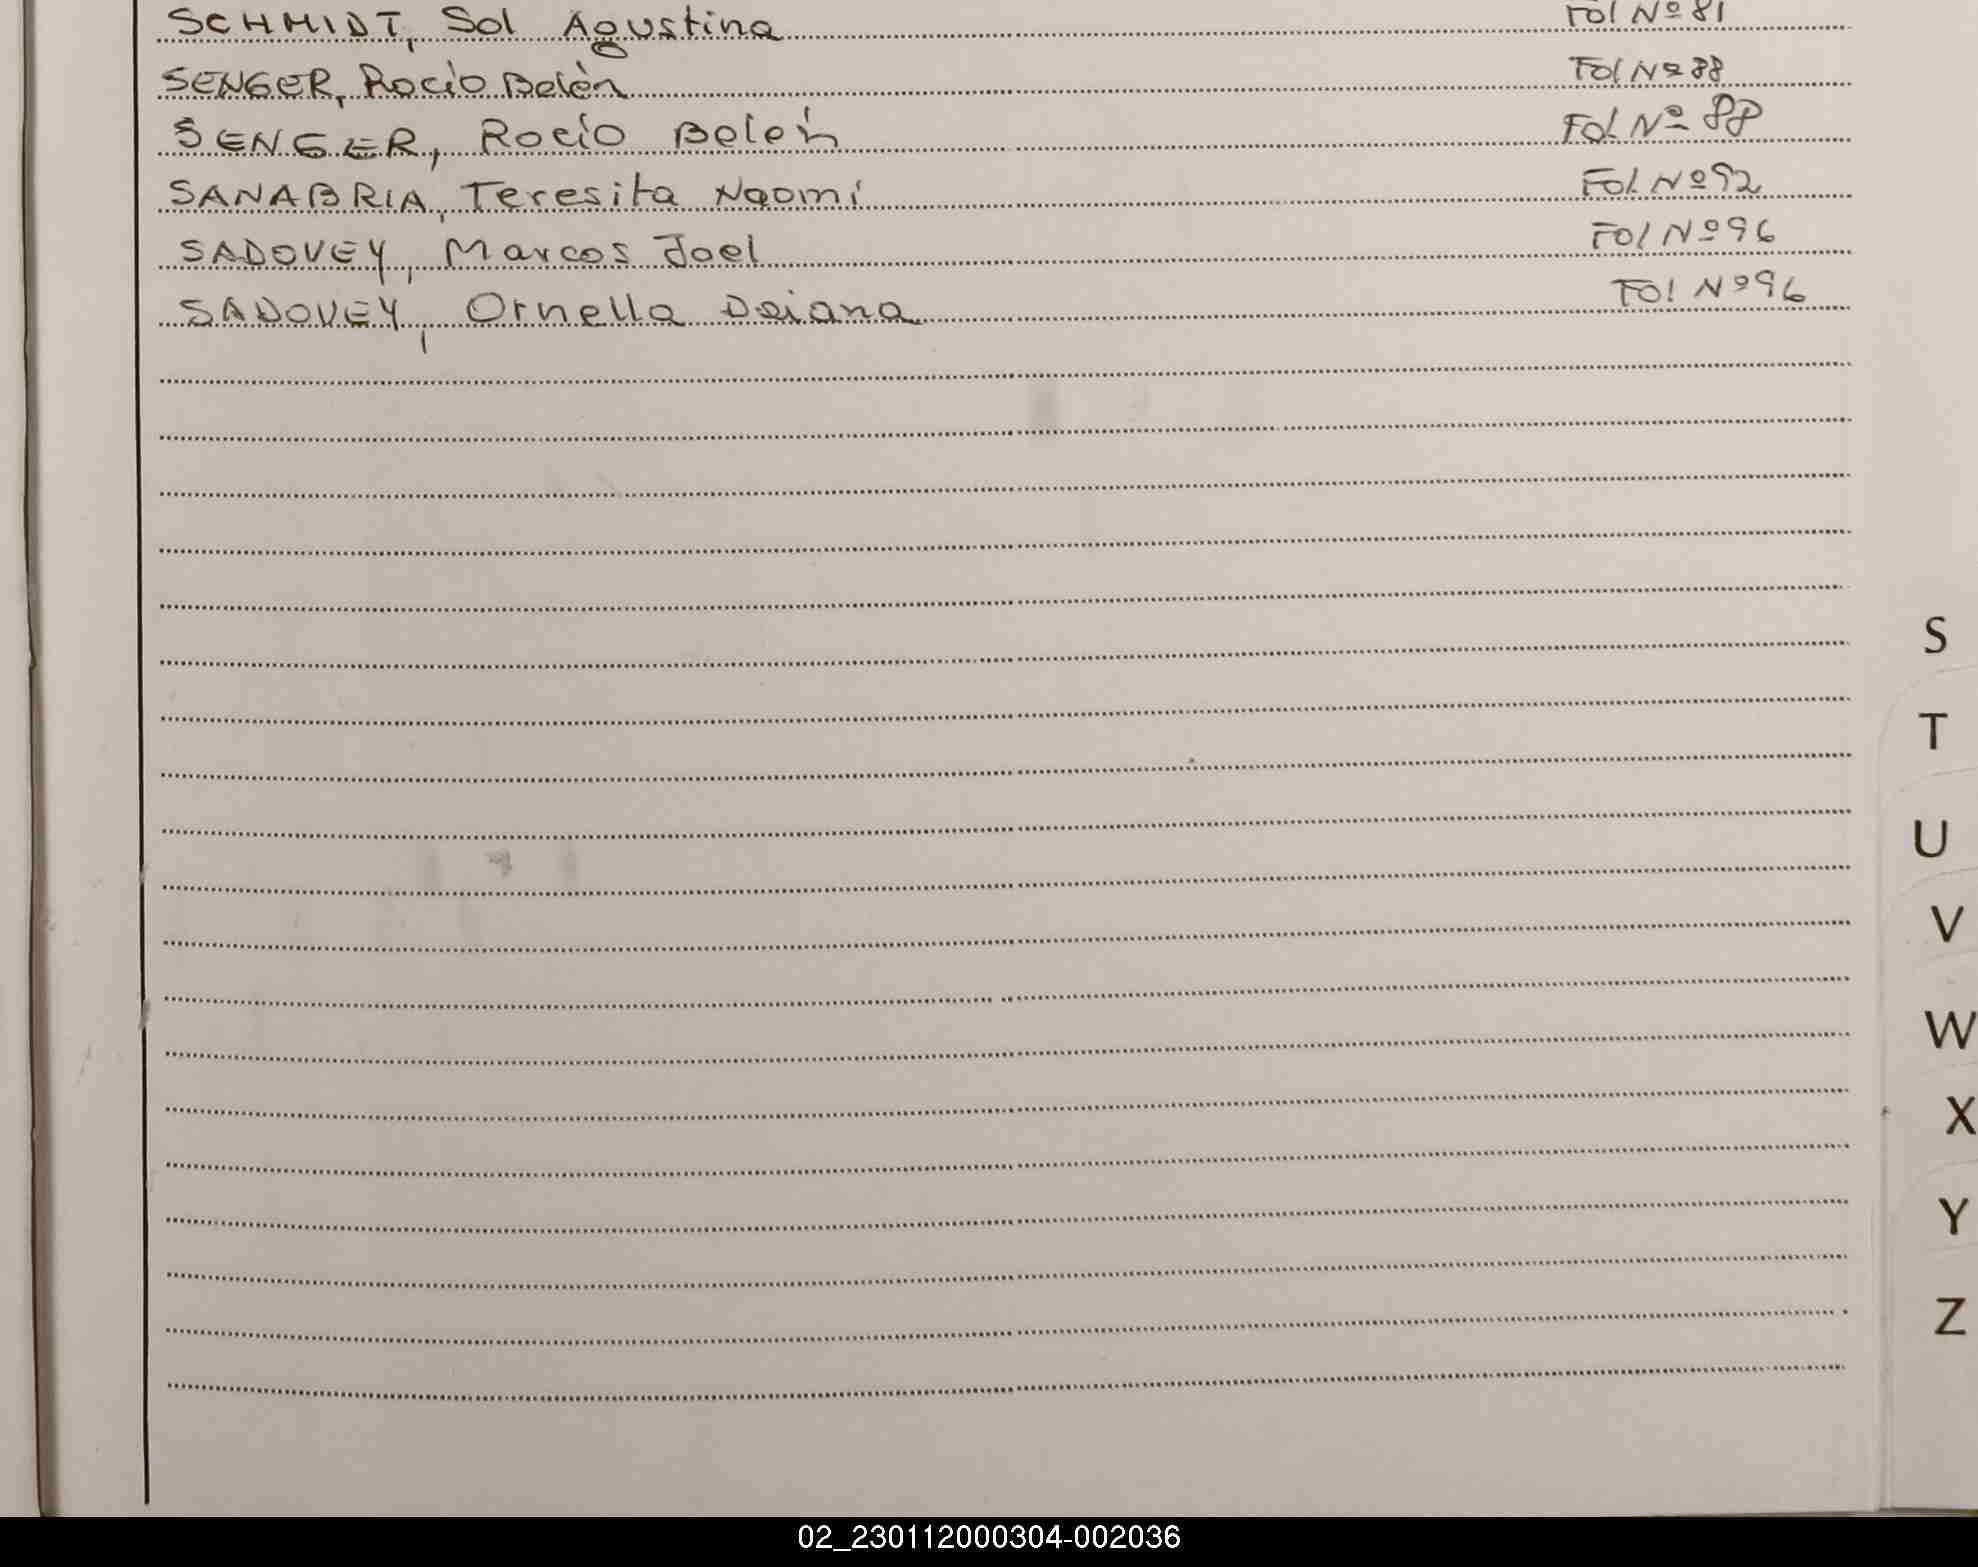 SCHMIDT, Sol Agustina Fol Nº 81
SENGER, Rocío Belén Fol Nº 88
SENGER, Rocío Belén Fol Nº 88
SANABRIA, Teresita Naomí Fol Nº 92
SADOVEY, Marcos Joel Fol Nº 96
SADOVEY, Ornella Daiana Fol Nº 96
S
T
U
V
W
X
Y
Z
02_230112000304-002036